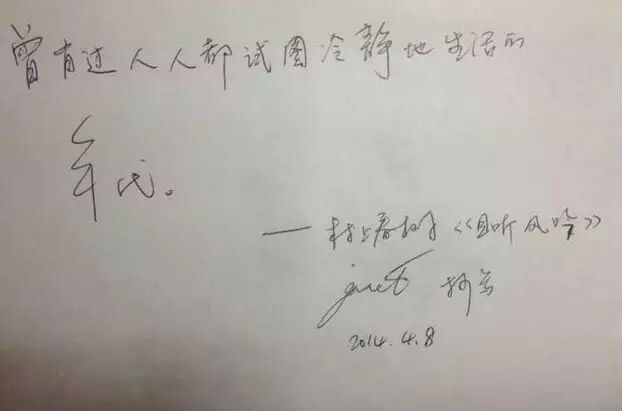 曾有过人人都试图冷静地生活的
年代。
——村上春树《且听风吟》
janet 抄写
2014.4.8